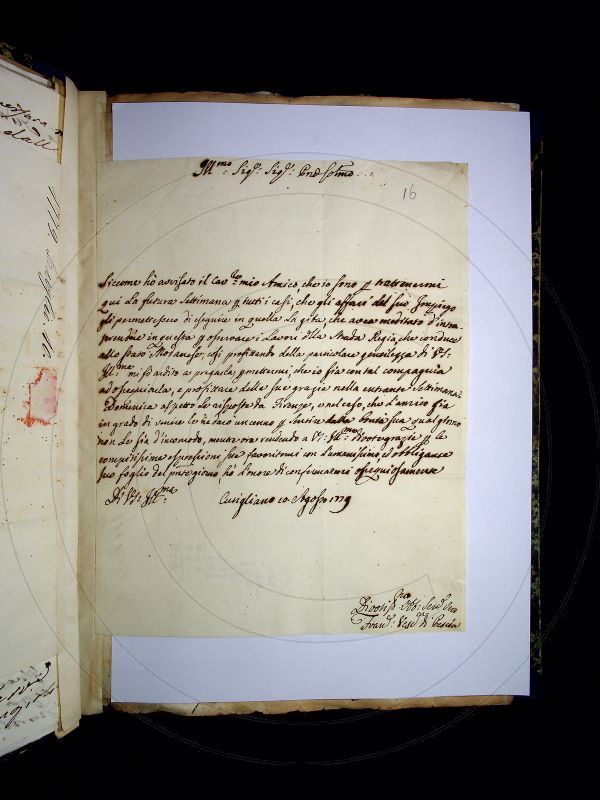 Ill.mo Sig.r Sig.r Pnē Colmo
16
Siccome hò avvisato il Cav.re mio Amico, che io sono p trattenermi
qui la futura Settimana p tutti i casi, che gli affari del suo Impiego
gli permettessero di eseguire in quella la gita, che avea meditato d'intra
prendere in questa p osservare i Lavori della Strada Regia, che conduce
allo Stato Modanese; così profittando della particolare gentilezza di V.S.
Ill.ma mi fò ardito a pregarla permettermi, che io sia con tal compagnia
ad ossequiarla, e profittare delle sue grazie nella entrante Settimana.
Domenica aspetto le risposte da Firenze, e nel caso, che l'amico sia
in grado di venire le ne darò un cenno p sentire dalla bontà sua qual giorno
non le sia d'incomodo, mentre ora rendendo a V.S. Ill.ma grazie p le
compitissime espressioni sue favoritemi con l'umanissimo, ed obbligante
suo foglio del giorno, hò l'onore di confermarmi ossequiosamente
Di V.S. Ill.ma
Cutigliano 10 Agosto 1779
Serv
Fran.o Vesc.o di Pescia